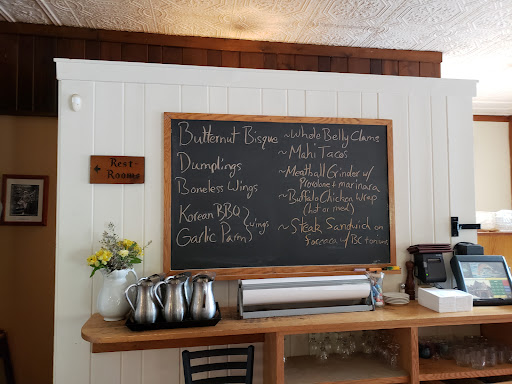 Butternut Bisque
Dumplings
Boneless Wings
Korean BBQ
Garlic Parm
wings
~ Whole Belly Clams
~ Mahi Tacos
~ Meatball Grinder w/
Provolone + marinara
~ Buffalo Chicken Wrap
(hot or med)
~ Steak Sandwich on
focaccia w/ BC +
Rest-
Rooms